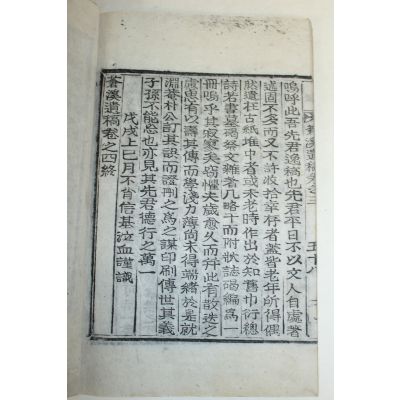 嗚呼此吾先君逸稿也先君平日不以文人自處著
述固不多而又不許收拾幸存者蓋皆老年所得偶
然遺在古紙堆中者或未老時作出於知舊巾衍總
詩若書墓碣祭文雜著凡略十而附狀誌碣編爲一
冊嗚乎其寂寥矣竊懼夫歲愈久而幷此有散迭之
慮思有以壽其傳而學淺力薄尚未得端緒於是就
淵菴朴公訂其誤而證刪之爲之謀印刷傳世其義
子孫不能忘也亦見其先君德行之萬一
戊戌上巳月不肖信基泣血謹識
蒼溪遺稿卷之四終
五十八